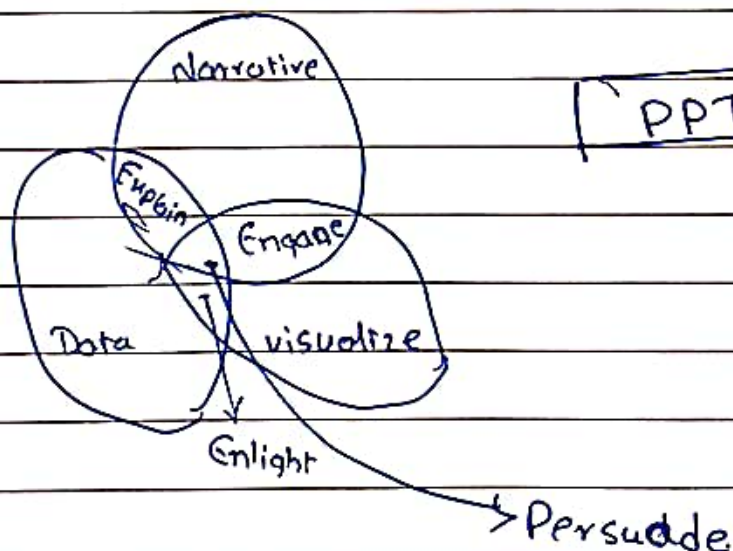 Narrative
PPT
Explain
Engage
Data
visualize
Enlight
Persuade